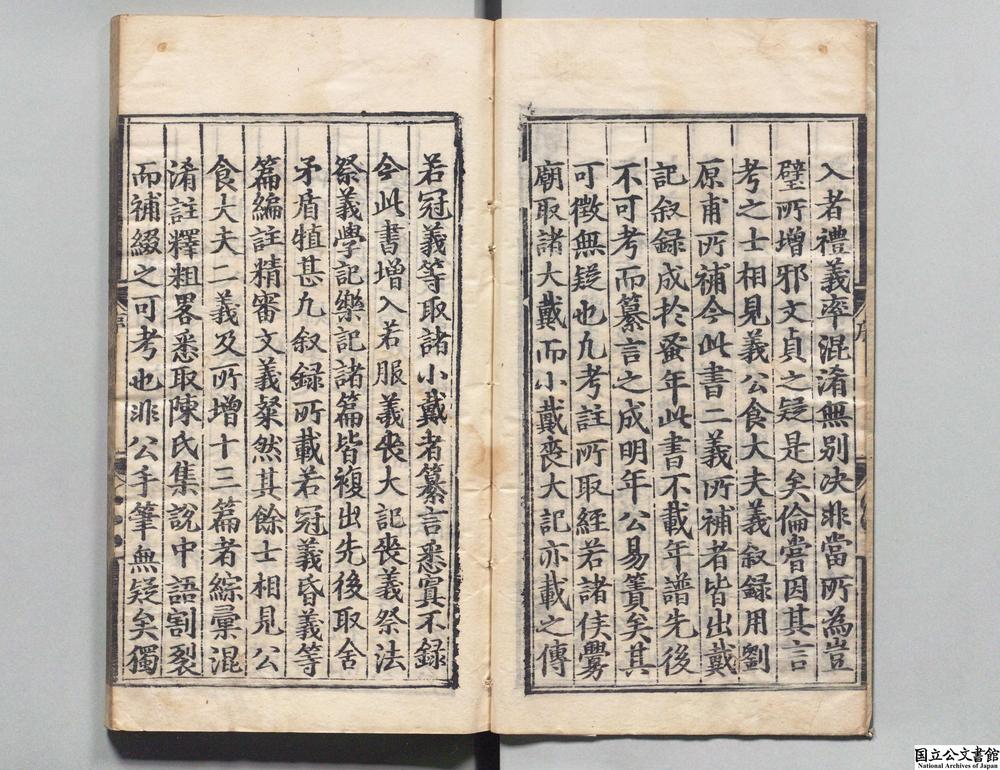 入者禮義率混淆無别决非當所為豈
壁所增邪文貞之疑是矣倫嘗因其言
考之士相見義公食大夫義叙録用劉
原甫所補今此書二義所補者皆出戴
記叙録成於蚤年此書不載年譜先後
不可考而纂言之成明年公易簀矣其
可徴無疑也九考註所取經若諸侯釁
廟取諸大戴而小戴喪大記亦載之傳
若冠義等取諸小戴者纂言悉寘不録
今此書增入若服義喪大記喪義祭法
祭義學記樂記諸篇皆複出先後取舍
矛盾犆甚九叙録所載若冠義昏義等
篇編註精審文義粲然其餘士相見公
食大夫二義及所增十三篇者綜彙混
淆註釋粗畧悉取陳氏集說中語割裂
而補綴之可考也非公手筆無疑矣獨
序
序
国立公文書館
National Archives of Japan